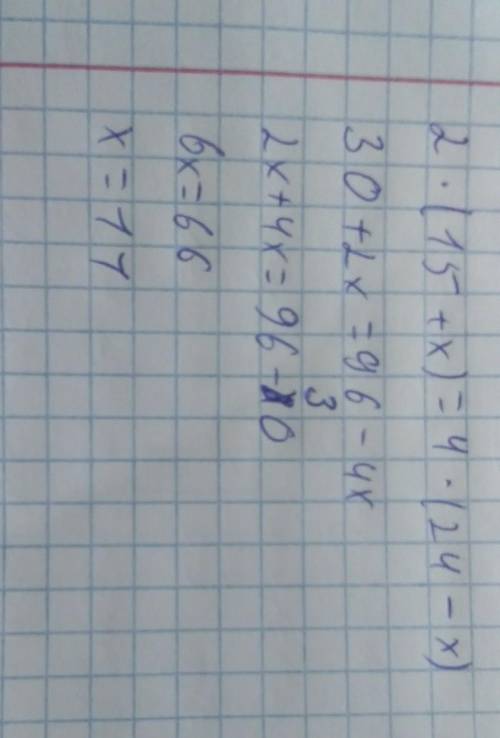 2 · (15 + x) = 4 · (24 - x)
30 + 2x = 96 - 4x
2x + 4x = 96 - 30
6x = 66
x = 11